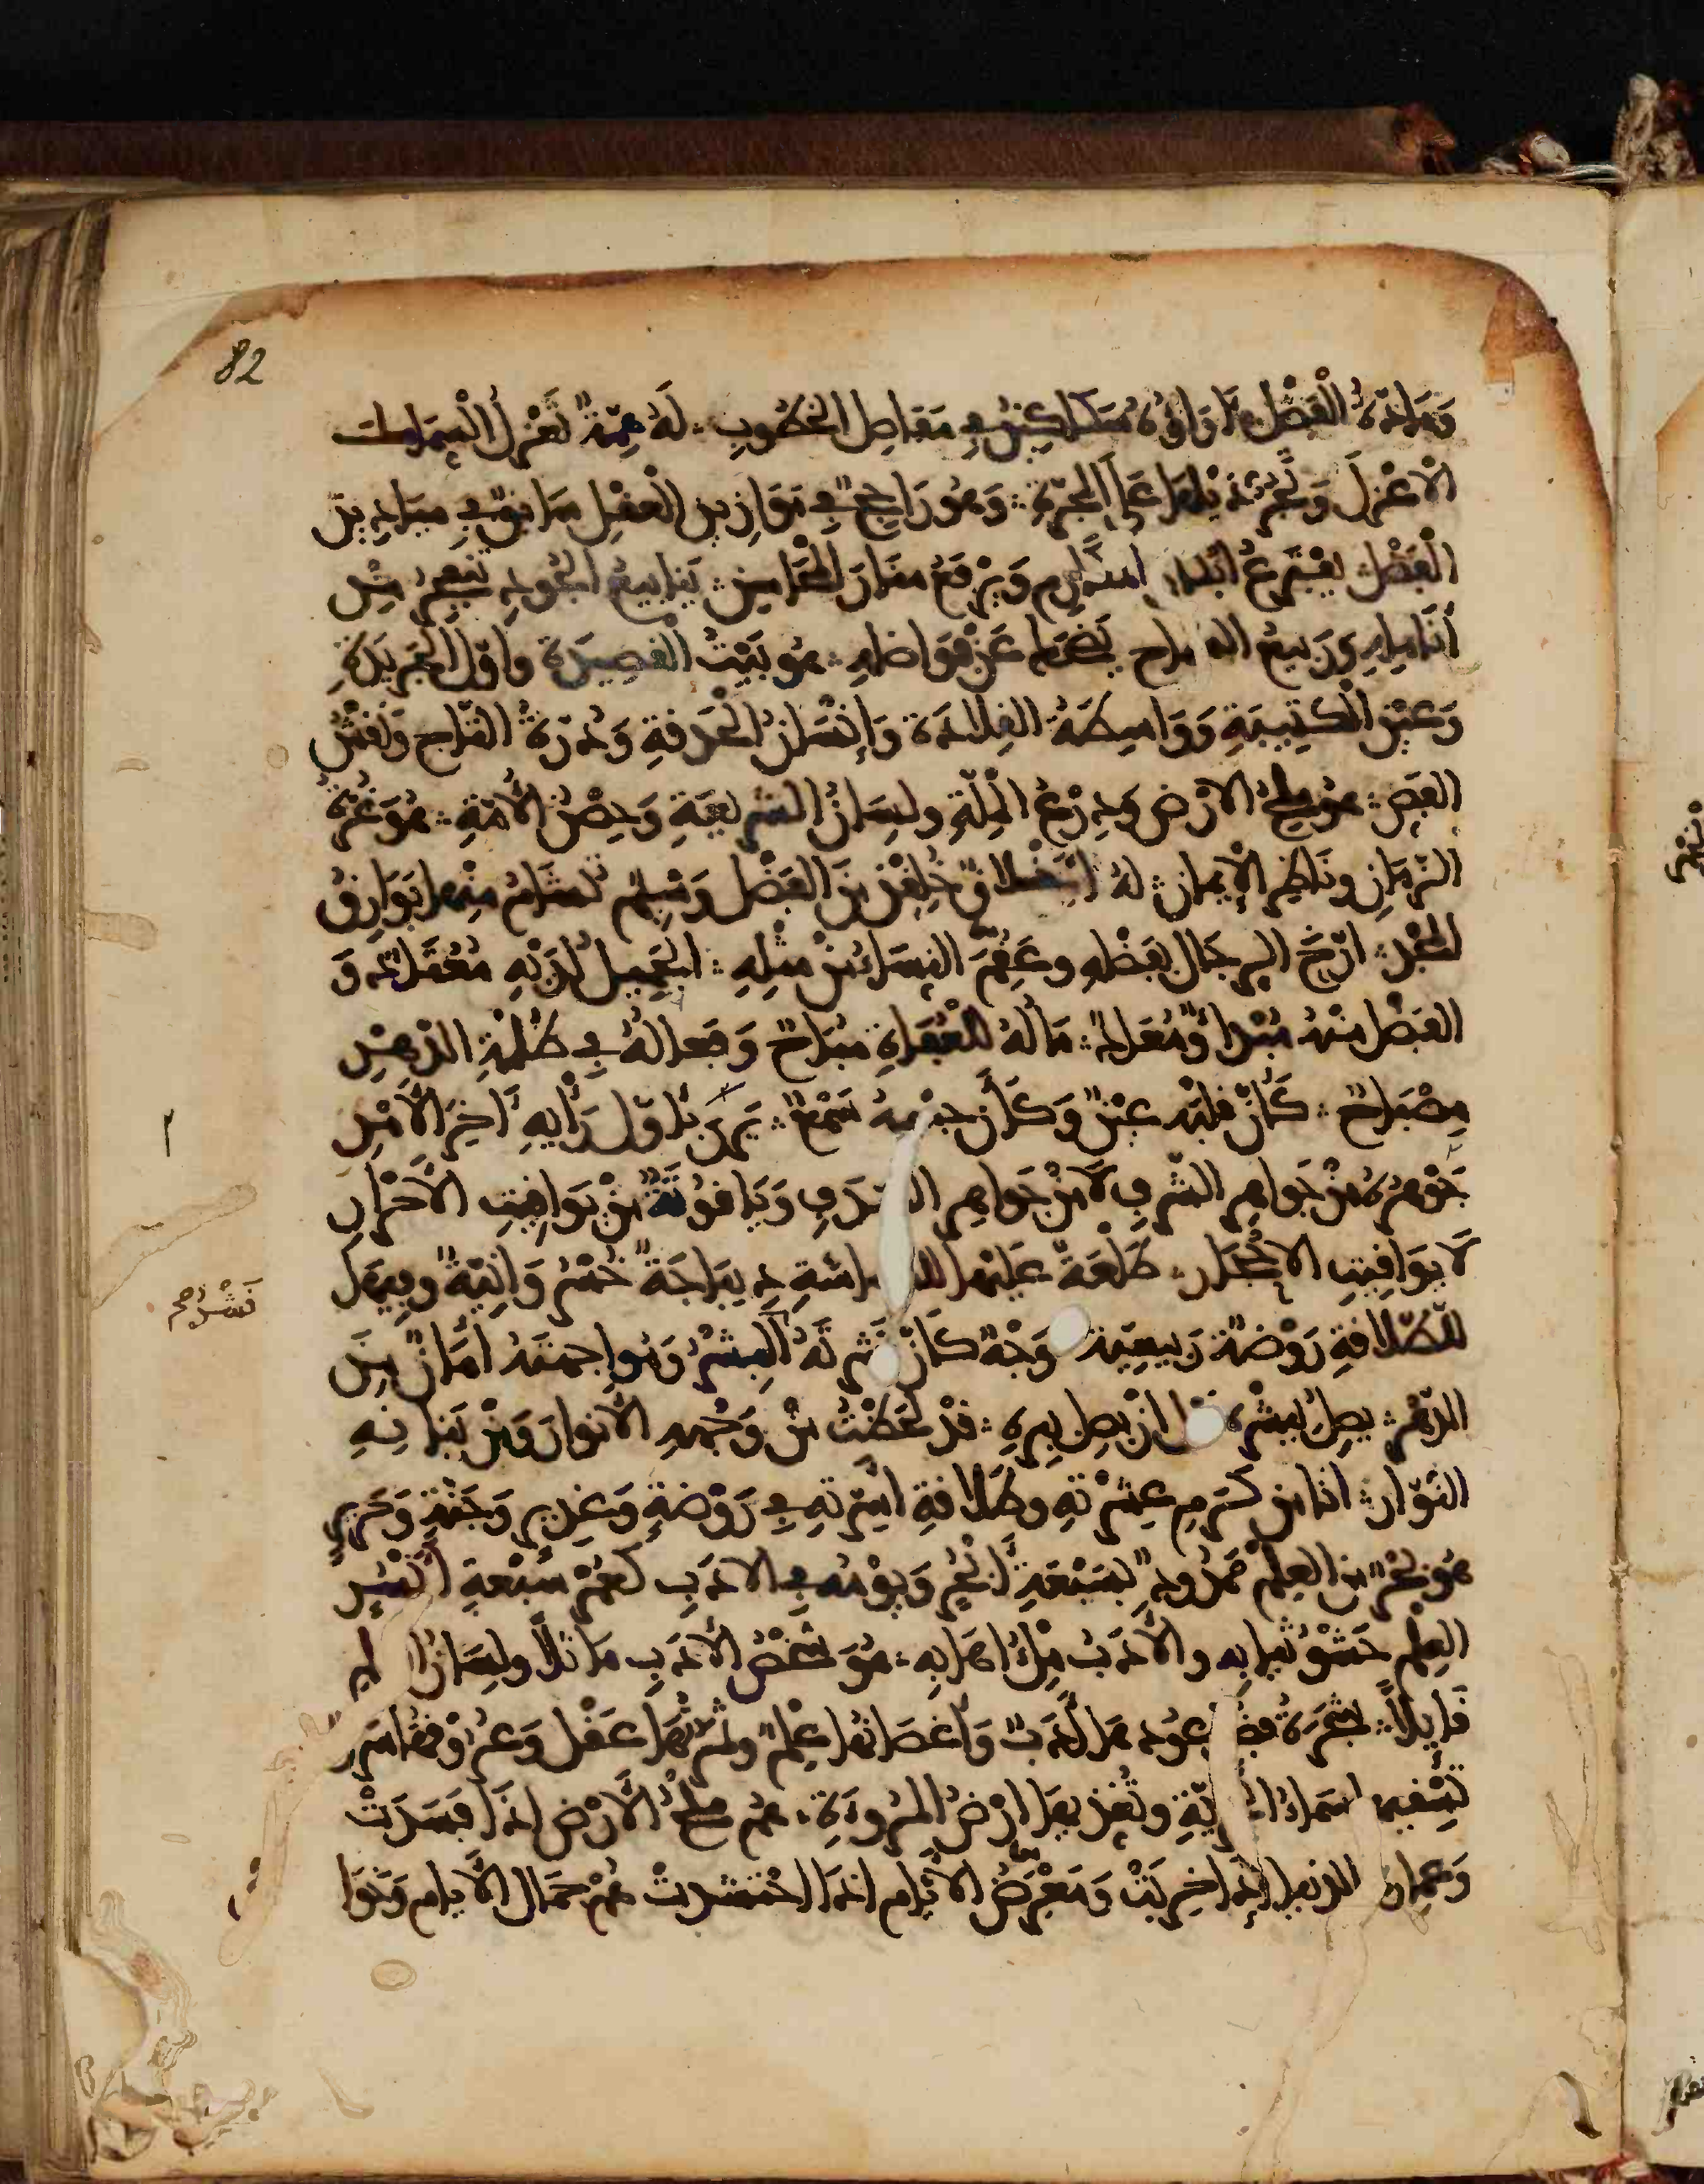 82
وَمَادّةُ الْفَضْلِ آرَاؤُهُ سَكَاكِينُ فِي مَفَاصِلِ الخُطُوبِ ∴ لَهُ هِمّةٌ تَعْزِلُ السِّمَاكَ
الأعْزَلَ وَتَجُرُّ ذَيْلَهَا عَلَى المَجَرّةِ ∴ وَهُوَ رَاجِحٌ فِي مَوَازِينِ الْعَقْلِ سَابِقٌ فِي مَيَادِينِ
الْفَضْلِ يَفْتَرِعُ أبْكَارَ المَكَارِمِ وَيَرْفَعُ مَنَارَ المَحَاسِنِ ∴ يَنَابِيعُ الجُودِ تَتَفَجَّرُ مِنْ
أنَامِلِهِ وَرَبِيعُ السماح يَضْحَكُ عَنْ فَوَاضِلِهِ ∴ هُوَ بَيْتُ الْقَصِيدَةِ وأوّلُ الجَرِيدَةِ
وَعَيْنُ الْكَتِيبَةِ وَوَاسِطَةُ القِلَادَةِ وَإنْسَانُ الحَدَقَةِ وَدُرّةُ التّاجِ وَنَقْشُ
الفَصِّ ∴ هُوَ مِلْحُ الأرْضِ وَدِرْعُ الْمِلّةِ ولِسَانُ الشّرِيعَةِ وَحِصْنُ الأُمّةِ ∴ هُوَ غُرّةُ
الزّمَانِ ونَاظِرُ الإيمَانِ ∴ لهُ أَخْلَاقٌ خُلِقْنَ مِنَ الفَضْلِ وَشِيَمٌ تُشَامُ مِنْهَا بَوَارِقُ
المَجْدِ ∴ أرّجَ الرِجَالُ بِفَضْلِهِ وعَقِمَ النِسَاءُ عَنْ مِثْلِهِ ∴ الجَمِيلُ لَدَيْهِ مُعْتَادٌ وَ
الفَضْلُ مِنْهُ مَبْدَأٌ وَمُعَادٌ ∴ مَالُهُ لِلْعُفَاةِ مُبَاحٌ وَفِعَالُهُ فِي ظُلْمَةِ الدّهْرِ
مِصْبَاحٌ ∴ كَأنّ قَلْبَهُ عَيْنٌ وَكَأنّ جِسْمَهُ سَمْعٌ ∴ يَرَى بِأوّلِ رَأيِهِ آخِرَ الأمْرِ
جَوْهَرُهُ مِنْ جَوَاهِرِ الشّرَفِ لَا مِنْ جَوَاهِرِ الصّدَفِ وَيَاقُوتَةٌ مِنْ يَوَاقِيتِ الأحْرَارِ
لَا يَوَاقِيتِ الأحْجَارِ ∴ طَلْعَةٌ عَلَيْهَا للبَشَاشَةِ دِيبَاجَةٌ خُسْرُوَانِيّةٌ وفِيهَا
لِلطّلَاقَةِ رَوْضَةٌ رَبِيعِيّةٌ وَجْهٌ كَأنّ بَشَرتَهُ الْبِشْرُ وَمُوَاجَهَتَهُ أمَانٌ مِنَ
الدّهْرِ ∴ يَصِلُ بِبِشْرِهِ قَبْلَ أنْ يَصِلَ بِبِرِّهِ ∴ قَدْ لَحَظْتُ مِنْ وَجْهِهِ الأنْوَارَ وَمِنْ بَنَانِهِ
النُوّارَ ∴ أنَا مِنْ كَرَمِ عِشْرَتِهِ وطَلَاقَةِ أسِرّتِهِ فِي رَوْضَةٍ وَغَدِيرٍ وَجَنّةٍ وَحَرِيرٍ
هُوَ نَجْمٌ مِنَ العِلْمِ مَحْدُودٌ بِسَبْعَةِ أنْجُمٍ وَيَوْمُهُ فِي الأدَبِ كَعُمْرِ سَبْعَةِ أنْسُرٍ
العِلْمُ حَشْوُ ثِيَابِهِ والأدَبُ مِلْءُ إهَابِهِ ∴ هُوَ شَخْصُ الأدَبِ مَاثِلاً ولِسَانُ العِلم
قَائِلاً ∴ شَجَرَةُ فضلٍ عُودُهَا أدَبٌ وَأغْصَانُهَا عِلْمٌ وثَمَرَتُهَا عَقْلٌ وَعُرُوقُهَا شَرَف
تَسْقِيهَا سَمَاءُ الحُرِّيّةِ وتُغَذِّيهَا أرْضُ المُرُوءَةِ ∴ هُمْ مِلْحُ الأرْضِ إذَا فَسَدَتْ
وَعُمَارَةُ الدّنْيَا إذَا خَرِبَتْ وَمَعْرَضُ الأيَّامِ إذَا احْتَشَدَتْ هُمْ جَمَالُ الأيامِ وَخَوَا